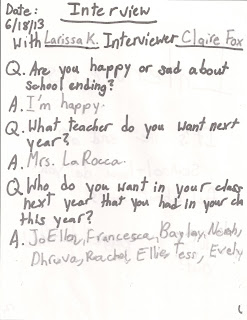 Date: Interview
6/18/13
With Larissa K. Interviewer Claire Fox
Q. Are you happy or sad about
school ending?
A. I'm happy.
Q. What teacher do you want next
year?
A. Mrs. LaRocca.
Q. Who do you want in your class
next year that you had in your cla
this year?
A. JoEllen, Francesca, Baylay, Noah,
Dhruva, Rachel, Ellie, Tess, Evely